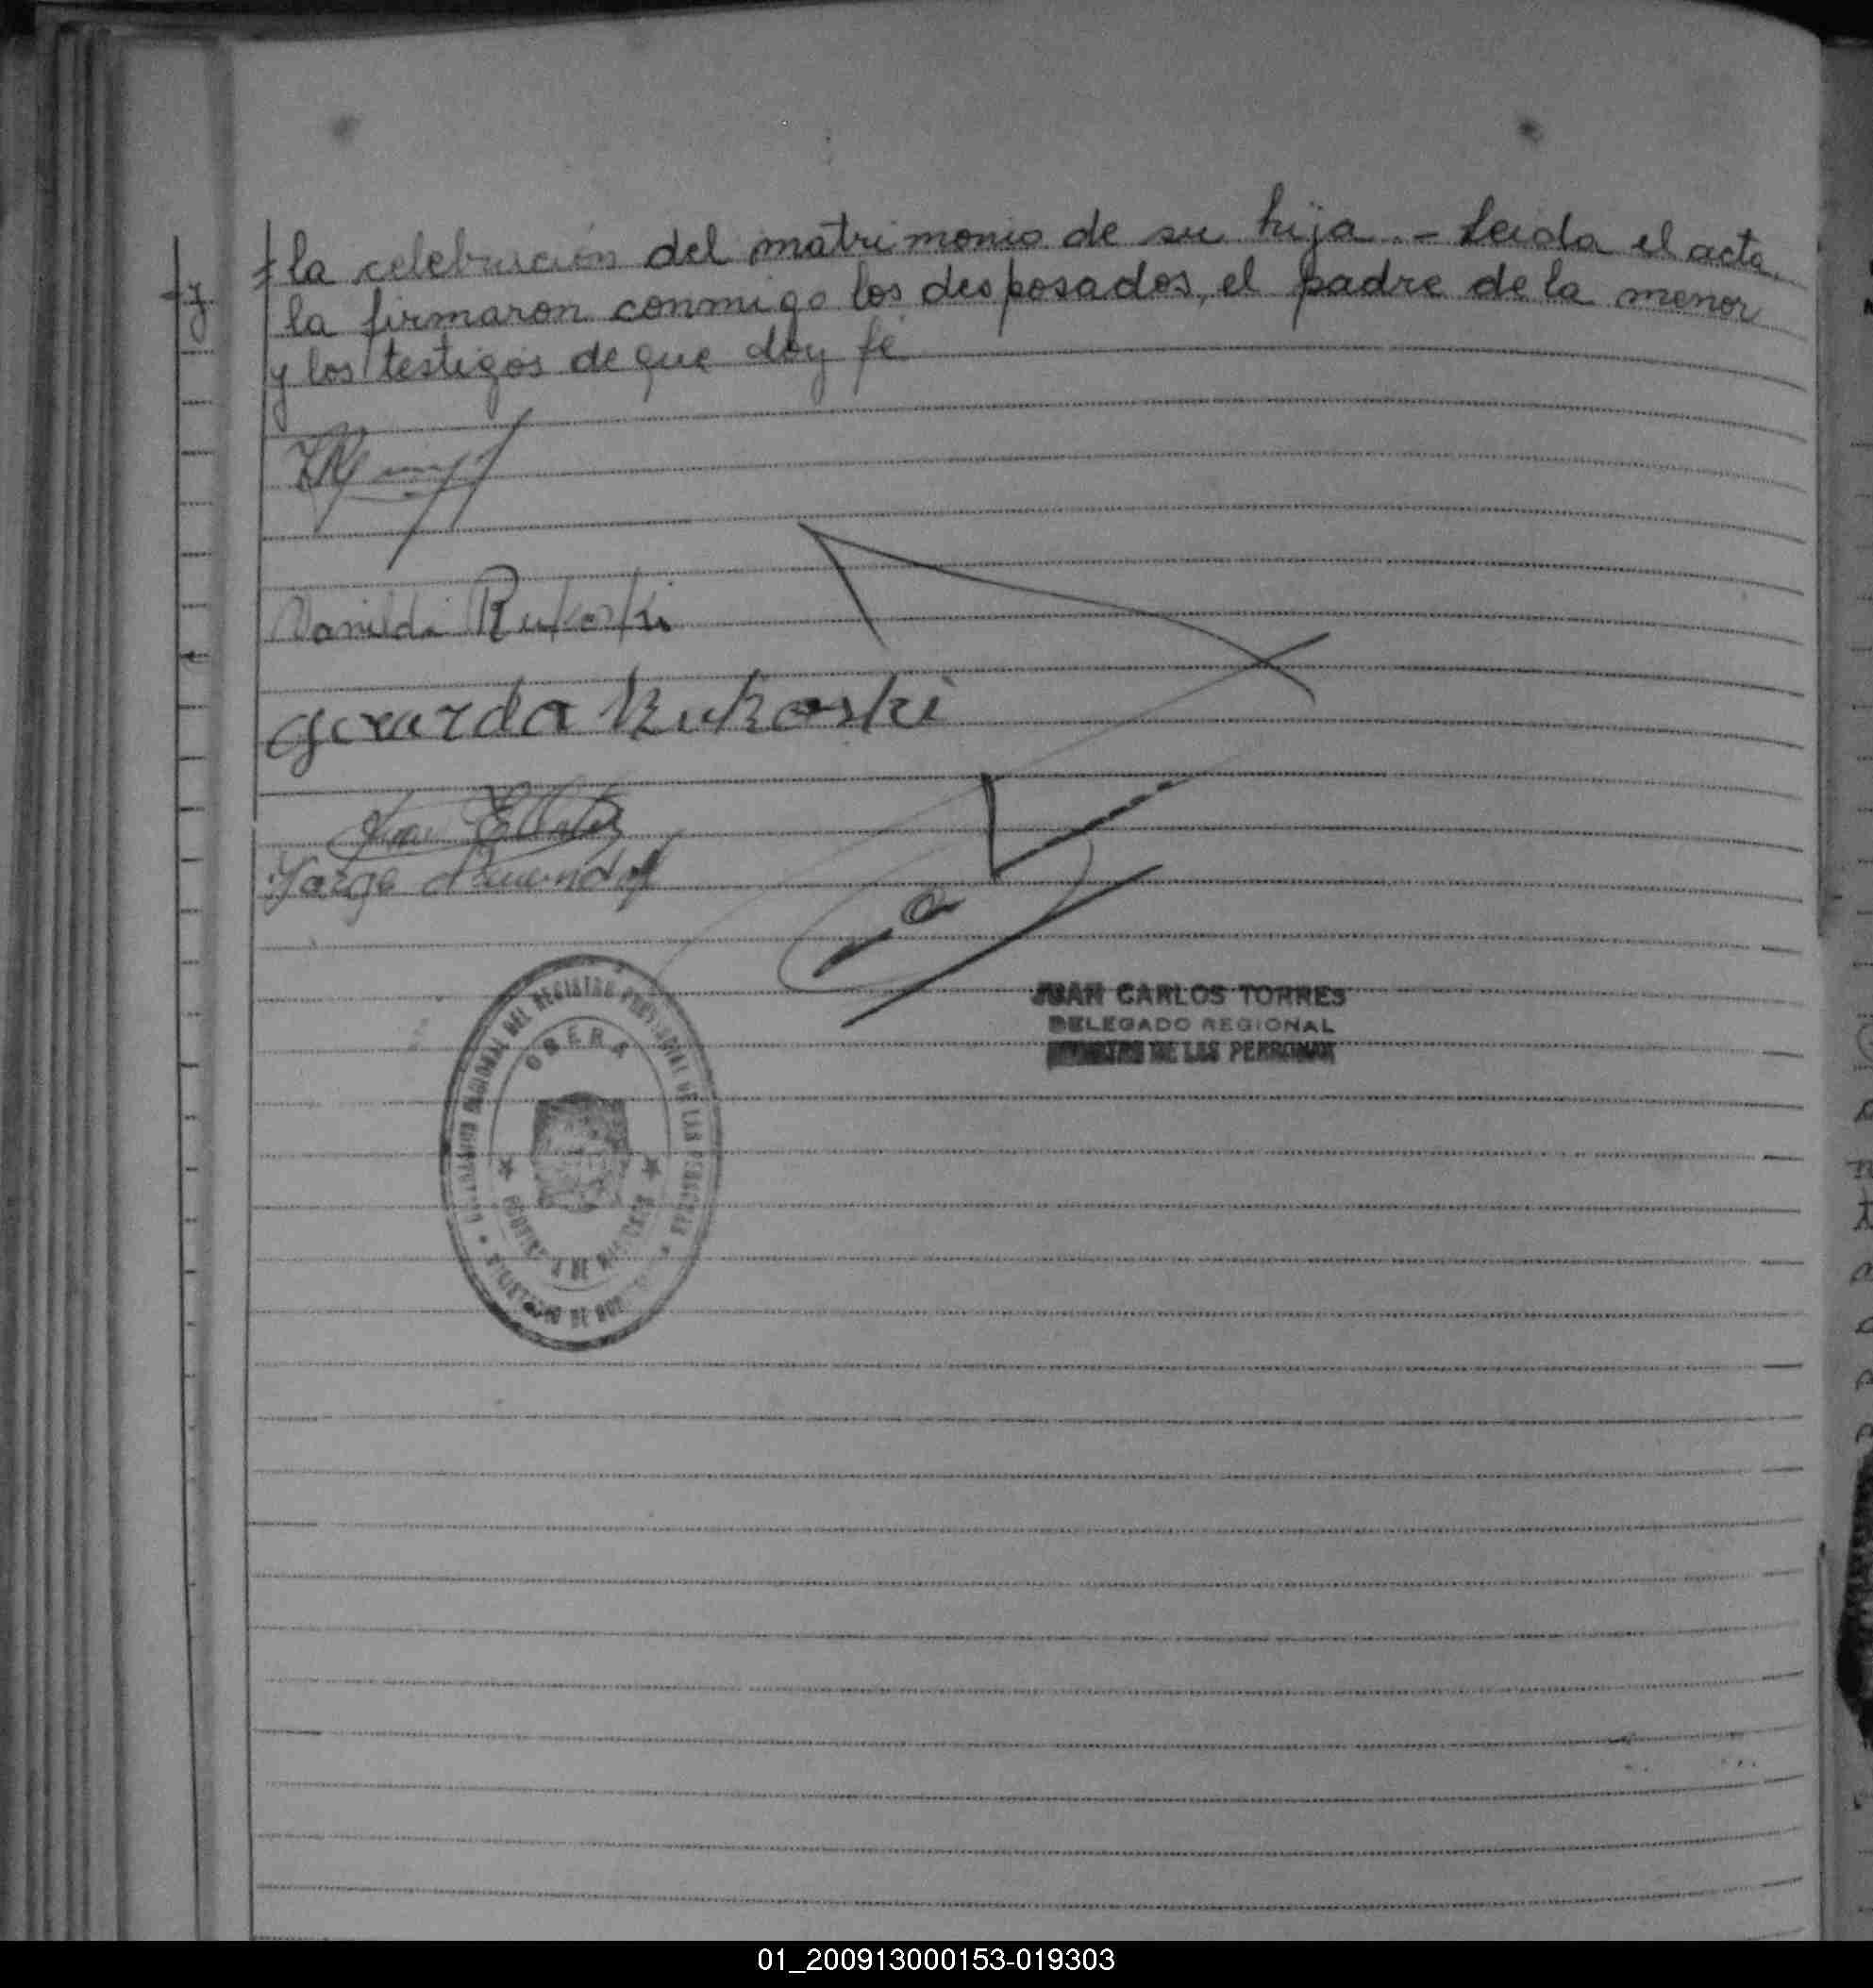 la celebración del matrimonio de su hija.- Leida el acta,
la firmaron conmigo los desposados, el padre de la menor
y los testigos de que doy fé
Rukoski
Gerarda Rukoski
Jorge
JUAN CARLOS TORRES
DELEGADO REGIONAL
REGISTRO DE LAS PERSONAS
REGIONAL DEL REGISTRO PROVINCIAL DE LAS PERSONAS
OBERA
DE MISIONES
01_200913000153-019303